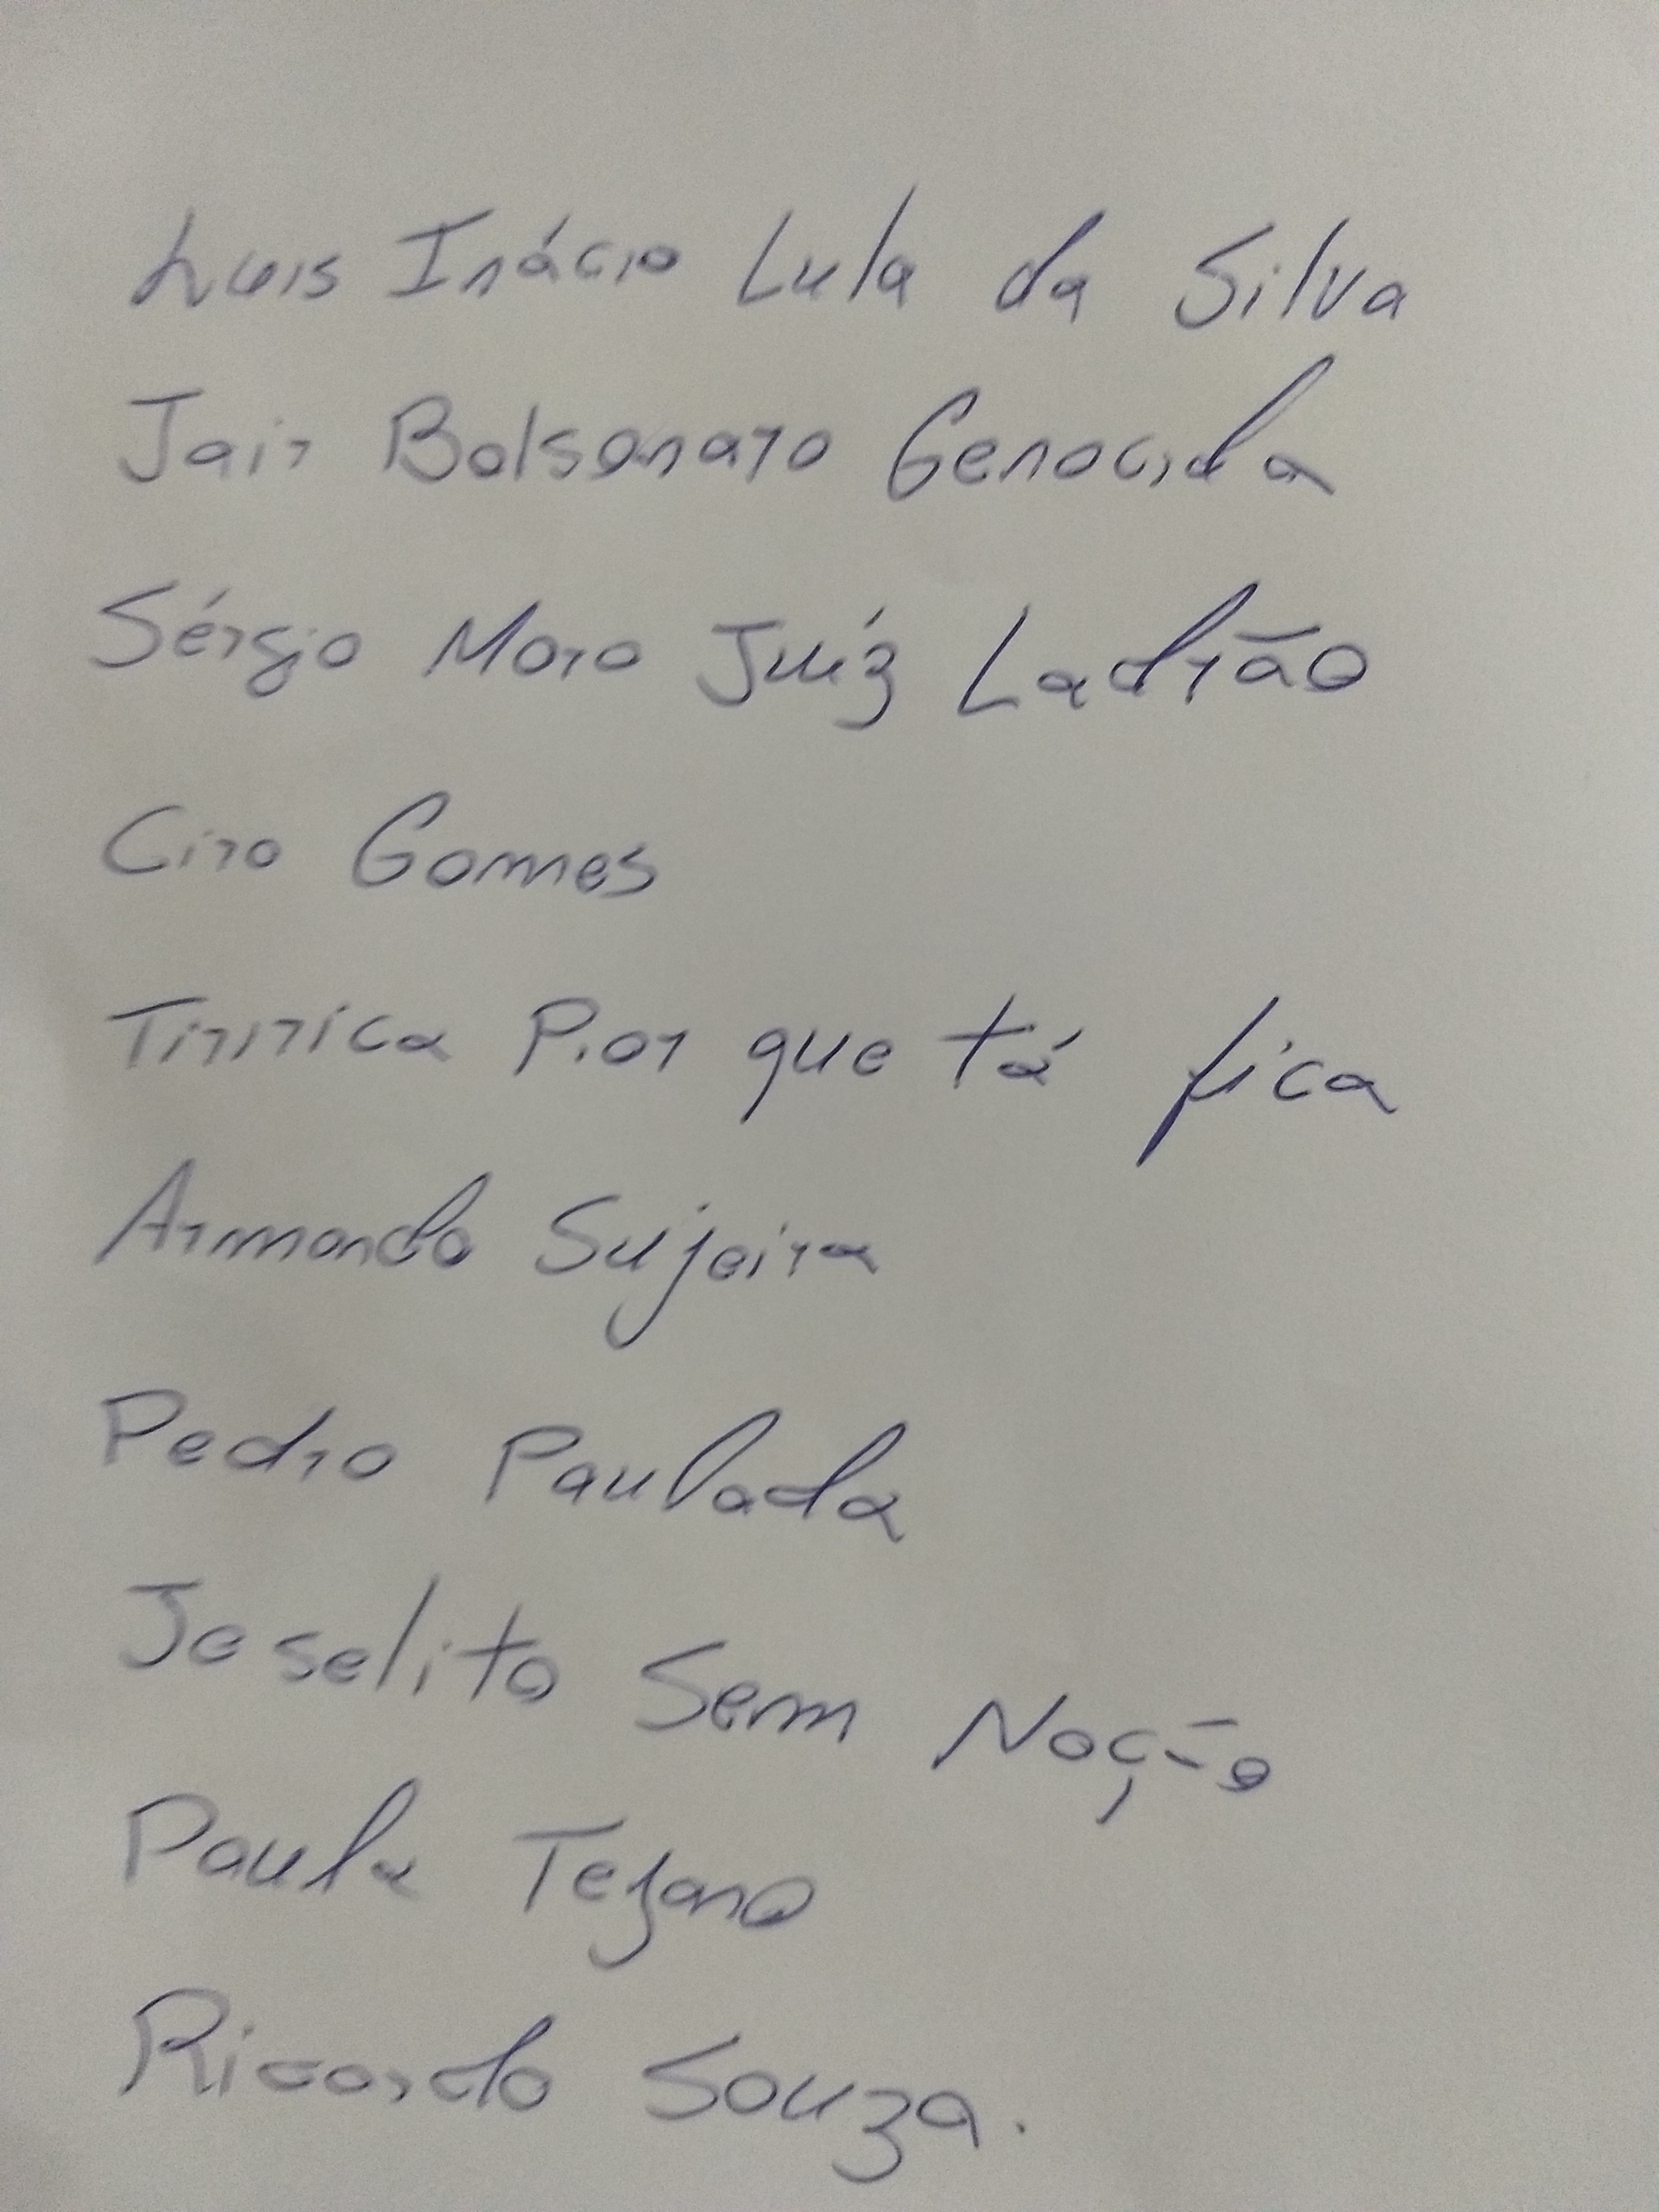 Luis Inácio Lula da Silva
Jair Bolsonaro Genocida
Sérgio Moro Juíz Ladrão
Ciro Gomes
Tiririca Pior que tá fica
Armando Sujeira
Pedro Paulada
Joselito Sem Noção
Paula Tejano
Ricardo Souza.